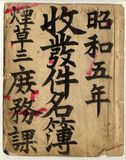 昭和五年
收發件名簿
煙草工庶務課